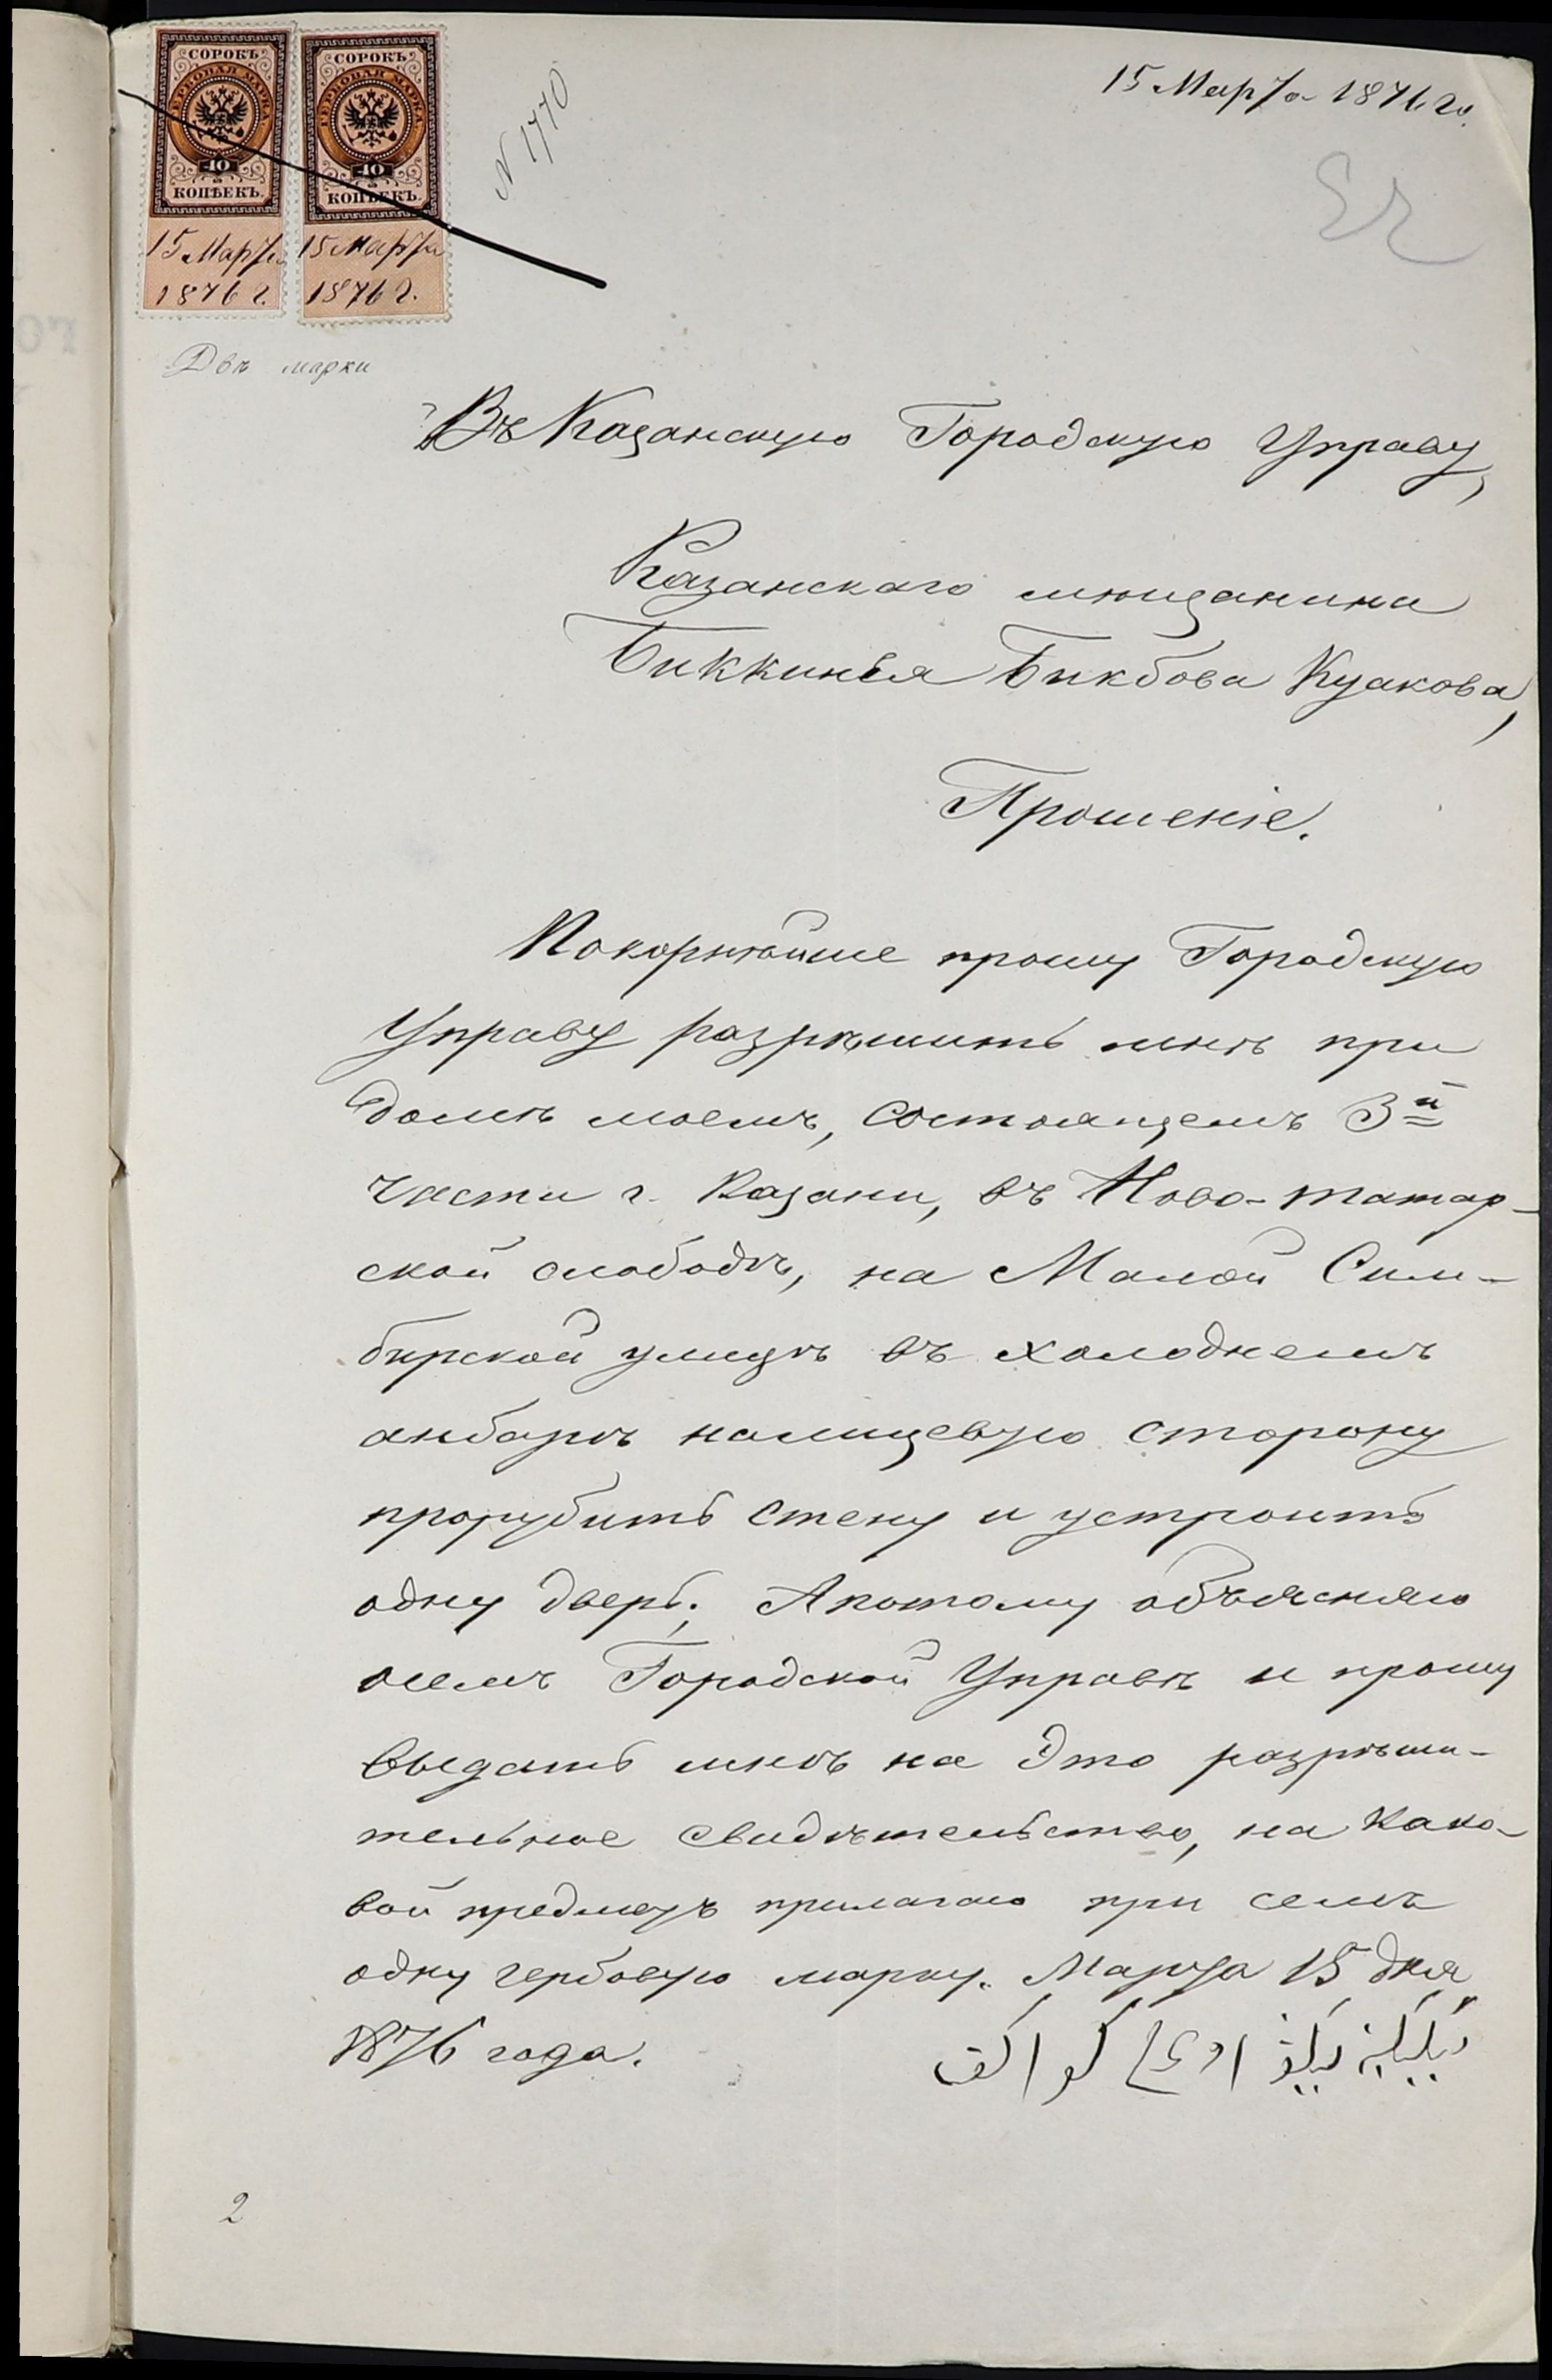 СОРОКЪ
ГЕРБОВАЯ МАРКА
40
КОПѢЕКЪ.
15 Марта
1876 г.
СОРОКЪ
ГЕРБОВАЯ МАРКА
40
КОПѢЕКЪ.
15 Марта
1876 г.
N 1770
15 Марта 1876 го.
Двѣ марки
Въ Казанскую Городскую Управу,
Казанскаго мѣщанина
Биккинея Бикбова Куакова,
Прошеніе.
Покорнѣйше прошу Городскую
Управу разрѣшить мнѣ при
домѣ моемъ, состоящемъ 3й
части г. Казани, въ Ново-татар-
ской слободѣ, на Малой Сим-
бирской улицѣ въ холоднемъ
анбарѣ налицевую сторону
прорубить стену и устроить
одну дверь. Апотому объясняю
осемъ Городской Управѣ и прошу
выдать мнѣ на это разрѣши-
тельное свидѣтельство, на како-
вой предметъ прилагаю при семъ
одну гербовую марку. Марта 15 дня
1876 года.
2